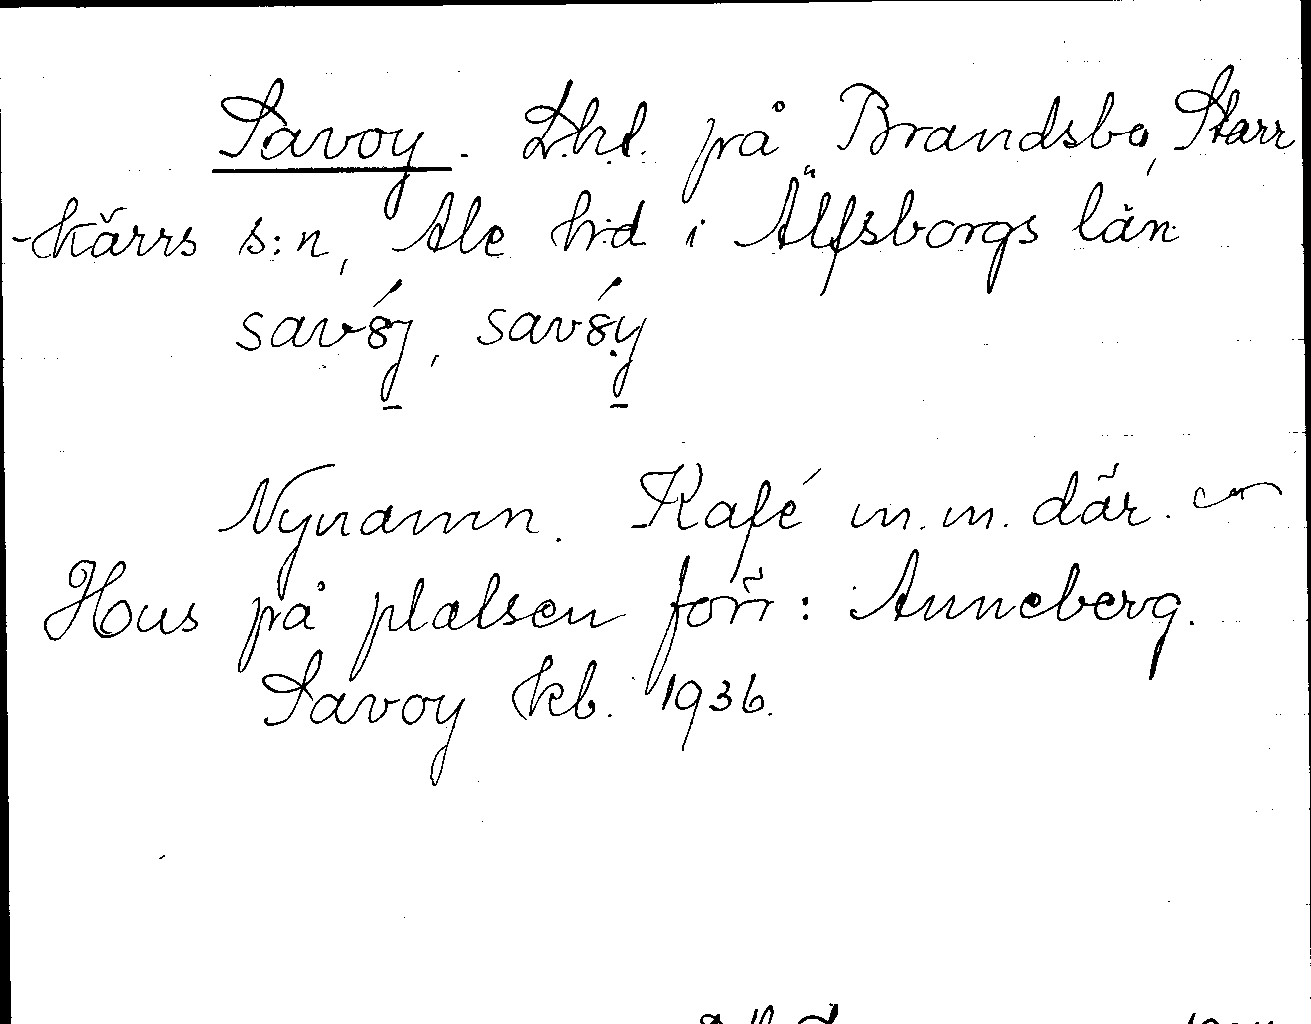 Savoy. L.h.l. på Brandsbo, Starr
-kärrs s:n, Ale h:d i Älfsborgs län.
Nynamn. Kafé m.m. där.
Hus på platsen förr: Anneberg.
Savoy kb. 1936.